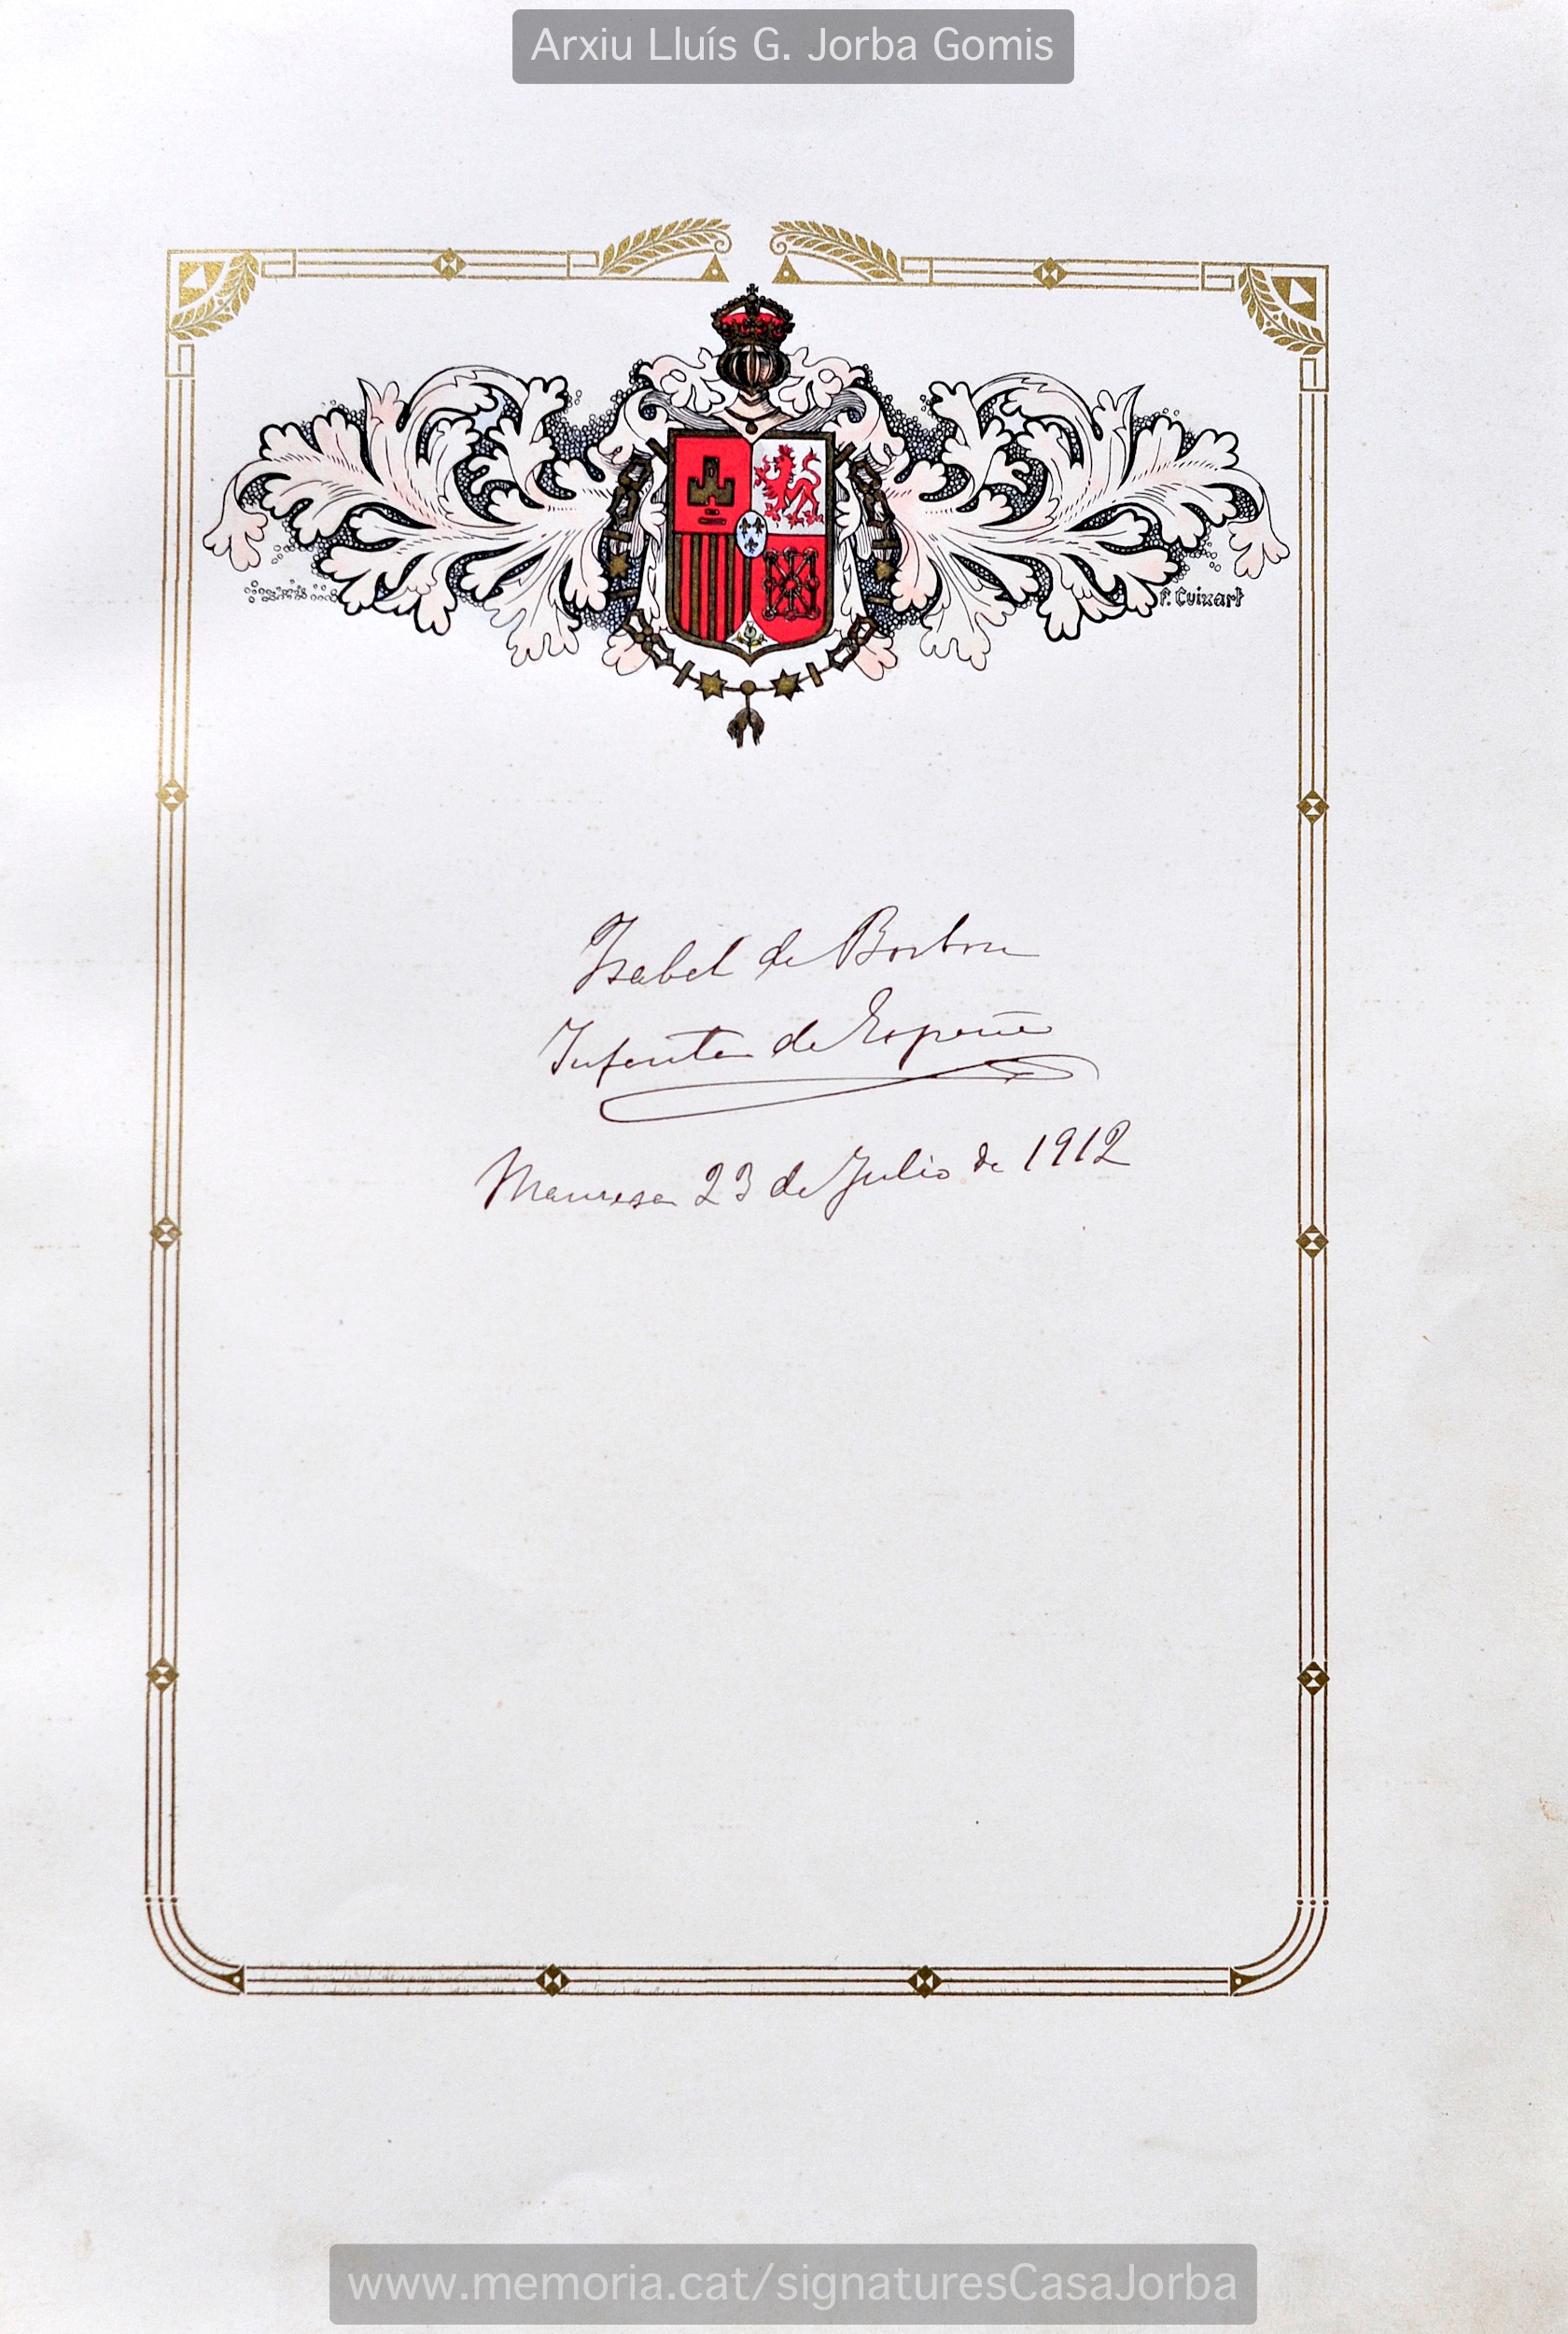 Arxiu Lluís G. Jorba Gomis
F. Cuixart
Isabel de Borbon
Infanta de España
Manresa 23 de Julio de 1912
www.memoria.cat/signaturesCasaJorba